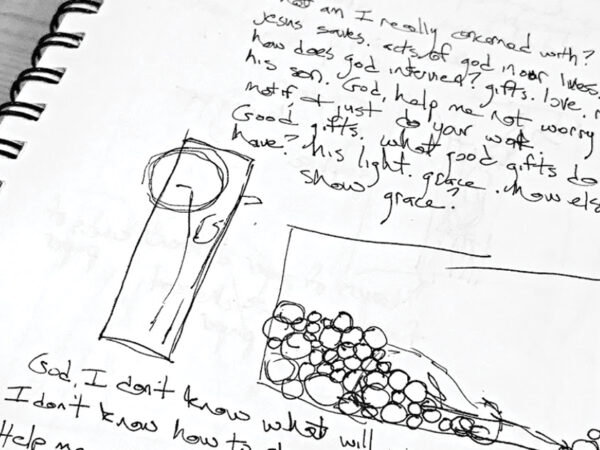 am I really concerned with?
Jesus saves. acts of god in our lives.
how does god intervene? gifts. love.
his son. God, help me not worry
motif & just do your work
Good gifts. what good gifts do
have? his light. grace. How else
show grace?
God, I don't know what will
I don't know how to
Help me